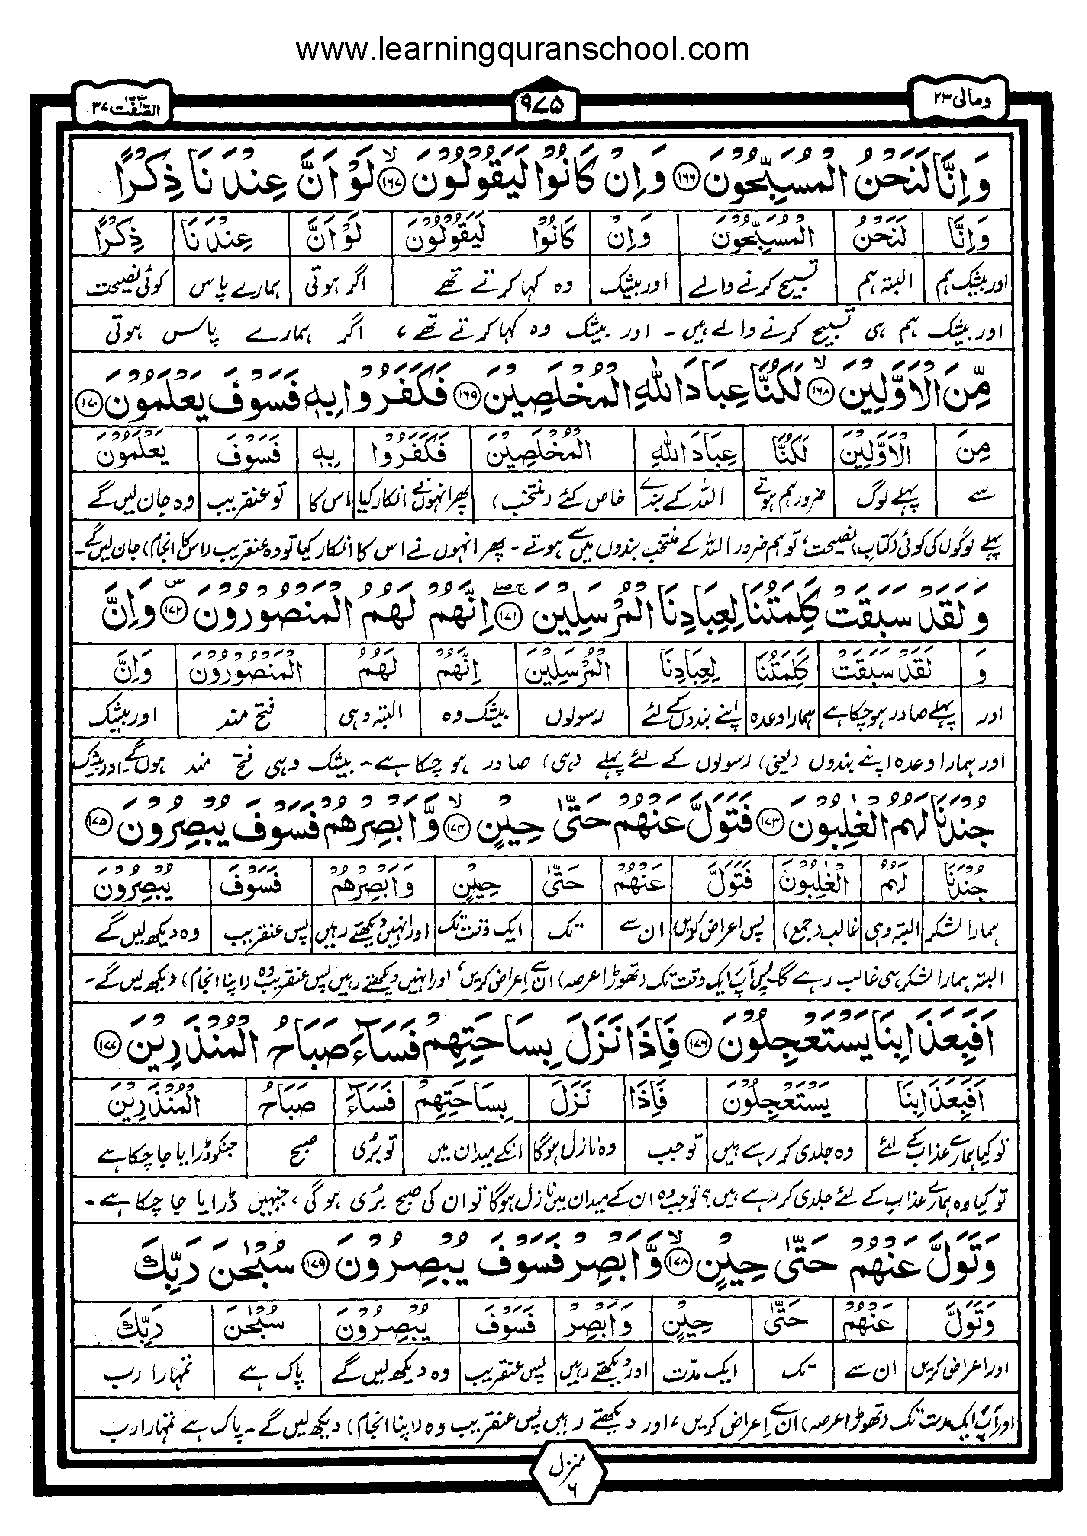 www.learningquranschool.com
ومالی ۲۳
۹۷۵
الصّٰٓفّٰت ۳۷
وَاِنَّا لَنَحْنُ الْمُسَبِّحُوْنَ ۝۱۶۶ وَاِنْ كَانُوْا لَيَقُوْلُوْنَ ۝۱۶۷ لَوْ اَنَّ عِنْدَنَا ذِكْرًا
وَاِنَّا لَنَحْنُ الْمُسَبِّحُوْنَ وَاِنْ كَانُوْا لَيَقُوْلُوْنَ لَوْ اَنَّ عِنْدَنَا ذِكْرًا
اور بیشک ہم البتہ ہم تسبیح کرنے والے اور بیشک وہ کہا کرتے تھے اگر ہوتی ہمارے پاس کوئی نصیحت
اور بیشک ہم ہی تسبیح کرنے والے ہیں۔ اور بیشک وہ کہا کرتے تھے، اگر ہمارے پاس ہوتی
مِّنَ الْاَوَّلِيْنَ ۝۱۶۸ لَكُنَّا عِبَادَ اللّٰهِ الْمُخْلَصِيْنَ ۝۱۶۹ فَكَفَرُوْا بِهٖ فَسَوْفَ يَعْلَمُوْنَ ۝۱۷۰
مِنَ الْاَوَّلِيْنَ لَكُنَّا عِبَادَ اللّٰهِ الْمُخْلَصِيْنَ فَكَفَرُوْا بِهٖ فَسَوْفَ يَعْلَمُوْنَ
سے پہلے لوگ ضرور ہم ہوتے اللہ کے بندے خاص کئے (منتخب) پھر انہوں نے انکار کیا اس کا تو عنقریب وہ جان لیں گے
پہلے لوگوں کی کوئی (کتاب) نصیحت، تو ہم ضرور اللہ کے منتخب بندوں میں سے ہوتے۔ پھر انہوں نے اس کا انکار کیا تو وہ عنقریب (اس کا انجام) جان لیں گے۔
وَلَقَدْ سَبَقَتْ كَلِمَتُنَا لِعِبَادِنَا الْمُرْسَلِيْنَ ۝۱۷۱ اِنَّهُمْ لَهُمُ الْمَنْصُوْرُوْنَ ۝۱۷۲ وَاِنَّ
وَ لَقَدْ سَبَقَتْ كَلِمَتُنَا لِعِبَادِنَا الْمُرْسَلِيْنَ اِنَّهُمْ لَهُمُ الْمَنْصُوْرُوْنَ وَاِنَّ
اور پہلے صادر ہو چکا ہے ہمارا وعدہ اپنے بندوں کے لئے رسولوں بیشک وہ البتہ وہی فتح مند اور بیشک
اور ہمارا وعدہ اپنے بندوں (یعنی) رسولوں کے لئے پہلے (ہی) صادر ہو چکا ہے۔ بیشک وہی فتح مند ہوں گے۔ اور بیشک
جُنْدَنَا لَهُمُ الْغٰلِبُوْنَ ۝۱۷۳ فَتَوَلَّ عَنْهُمْ حَتّٰى حِيْنٍ ۝۱۷۴ وَّاَبْصِرْهُمْ فَسَوْفَ يُبْصِرُوْنَ ۝۱۷۵
جُنْدَنَا لَهُمُ الْغٰلِبُوْنَ فَتَوَلَّ عَنْهُمْ حَتّٰى حِيْنٍ وَاَبْصِرْهُمْ فَسَوْفَ يُبْصِرُوْنَ
ہمارا لشکر البتہ وہی غالب (جمع) پس اعراض کریں ان سے تک ایک وقت تک اور انہیں دیکھتے رہیں پس عنقریب وہ دیکھ لیں گے
البتہ ہمارا لشکر ہی غالب رہے گا۔ پس آپ ایک وقت تک (تھوڑا عرصہ) ان سے اعراض کریں، اور انہیں دیکھتے رہیں پس عنقریب وہ (اپنا انجام) دیکھ لیں گے۔
اَفَبِعَذَابِنَا يَسْتَعْجِلُوْنَ ۝۱۷۶ فَاِذَا نَزَلَ بِسَاحَتِهِمْ فَسَآءَ صَبَاحُ الْمُنْذَرِيْنَ ۝۱۷۷
اَفَبِعَذَابِنَا يَسْتَعْجِلُوْنَ فَاِذَا نَزَلَ بِسَاحَتِهِمْ فَسَآءَ صَبَاحُ الْمُنْذَرِيْنَ
تو کیا ہمارے عذاب کے لئے وہ جلدی کر رہے ہیں تو جب وہ نازل ہوگا انکے میدان میں تو بُری صبح جنکو ڈرایا جا چکا ہے
تو کیا وہ ہمارے عذاب کے لئے جلدی کر رہے ہیں؟ تو جب وہ ان کے میدان میں نازل ہوگا تو ان کی صبح بُری ہوگی، جنہیں ڈرایا جا چکا ہے۔
وَتَوَلَّ عَنْهُمْ حَتّٰى حِيْنٍ ۝۱۷۸ وَّاَبْصِرْ فَسَوْفَ يُبْصِرُوْنَ ۝۱۷۹ سُبْحٰنَ رَبِّكَ
وَتَوَلَّ عَنْهُمْ حَتّٰى حِيْنٍ وَاَبْصِرْ فَسَوْفَ يُبْصِرُوْنَ سُبْحٰنَ رَبِّكَ
اور اعراض کریں ان سے تک ایک مدت اور دیکھتے رہیں پس عنقریب وہ دیکھ لیں گے پاک ہے تمہارا رب
اور آپ ایک مدت تک (تھوڑا عرصہ) ان سے اعراض کریں، اور دیکھتے رہیں پس عنقریب وہ (اپنا انجام) دیکھ لیں گے۔ پاک ہے تمہارا رب
منزل ۶